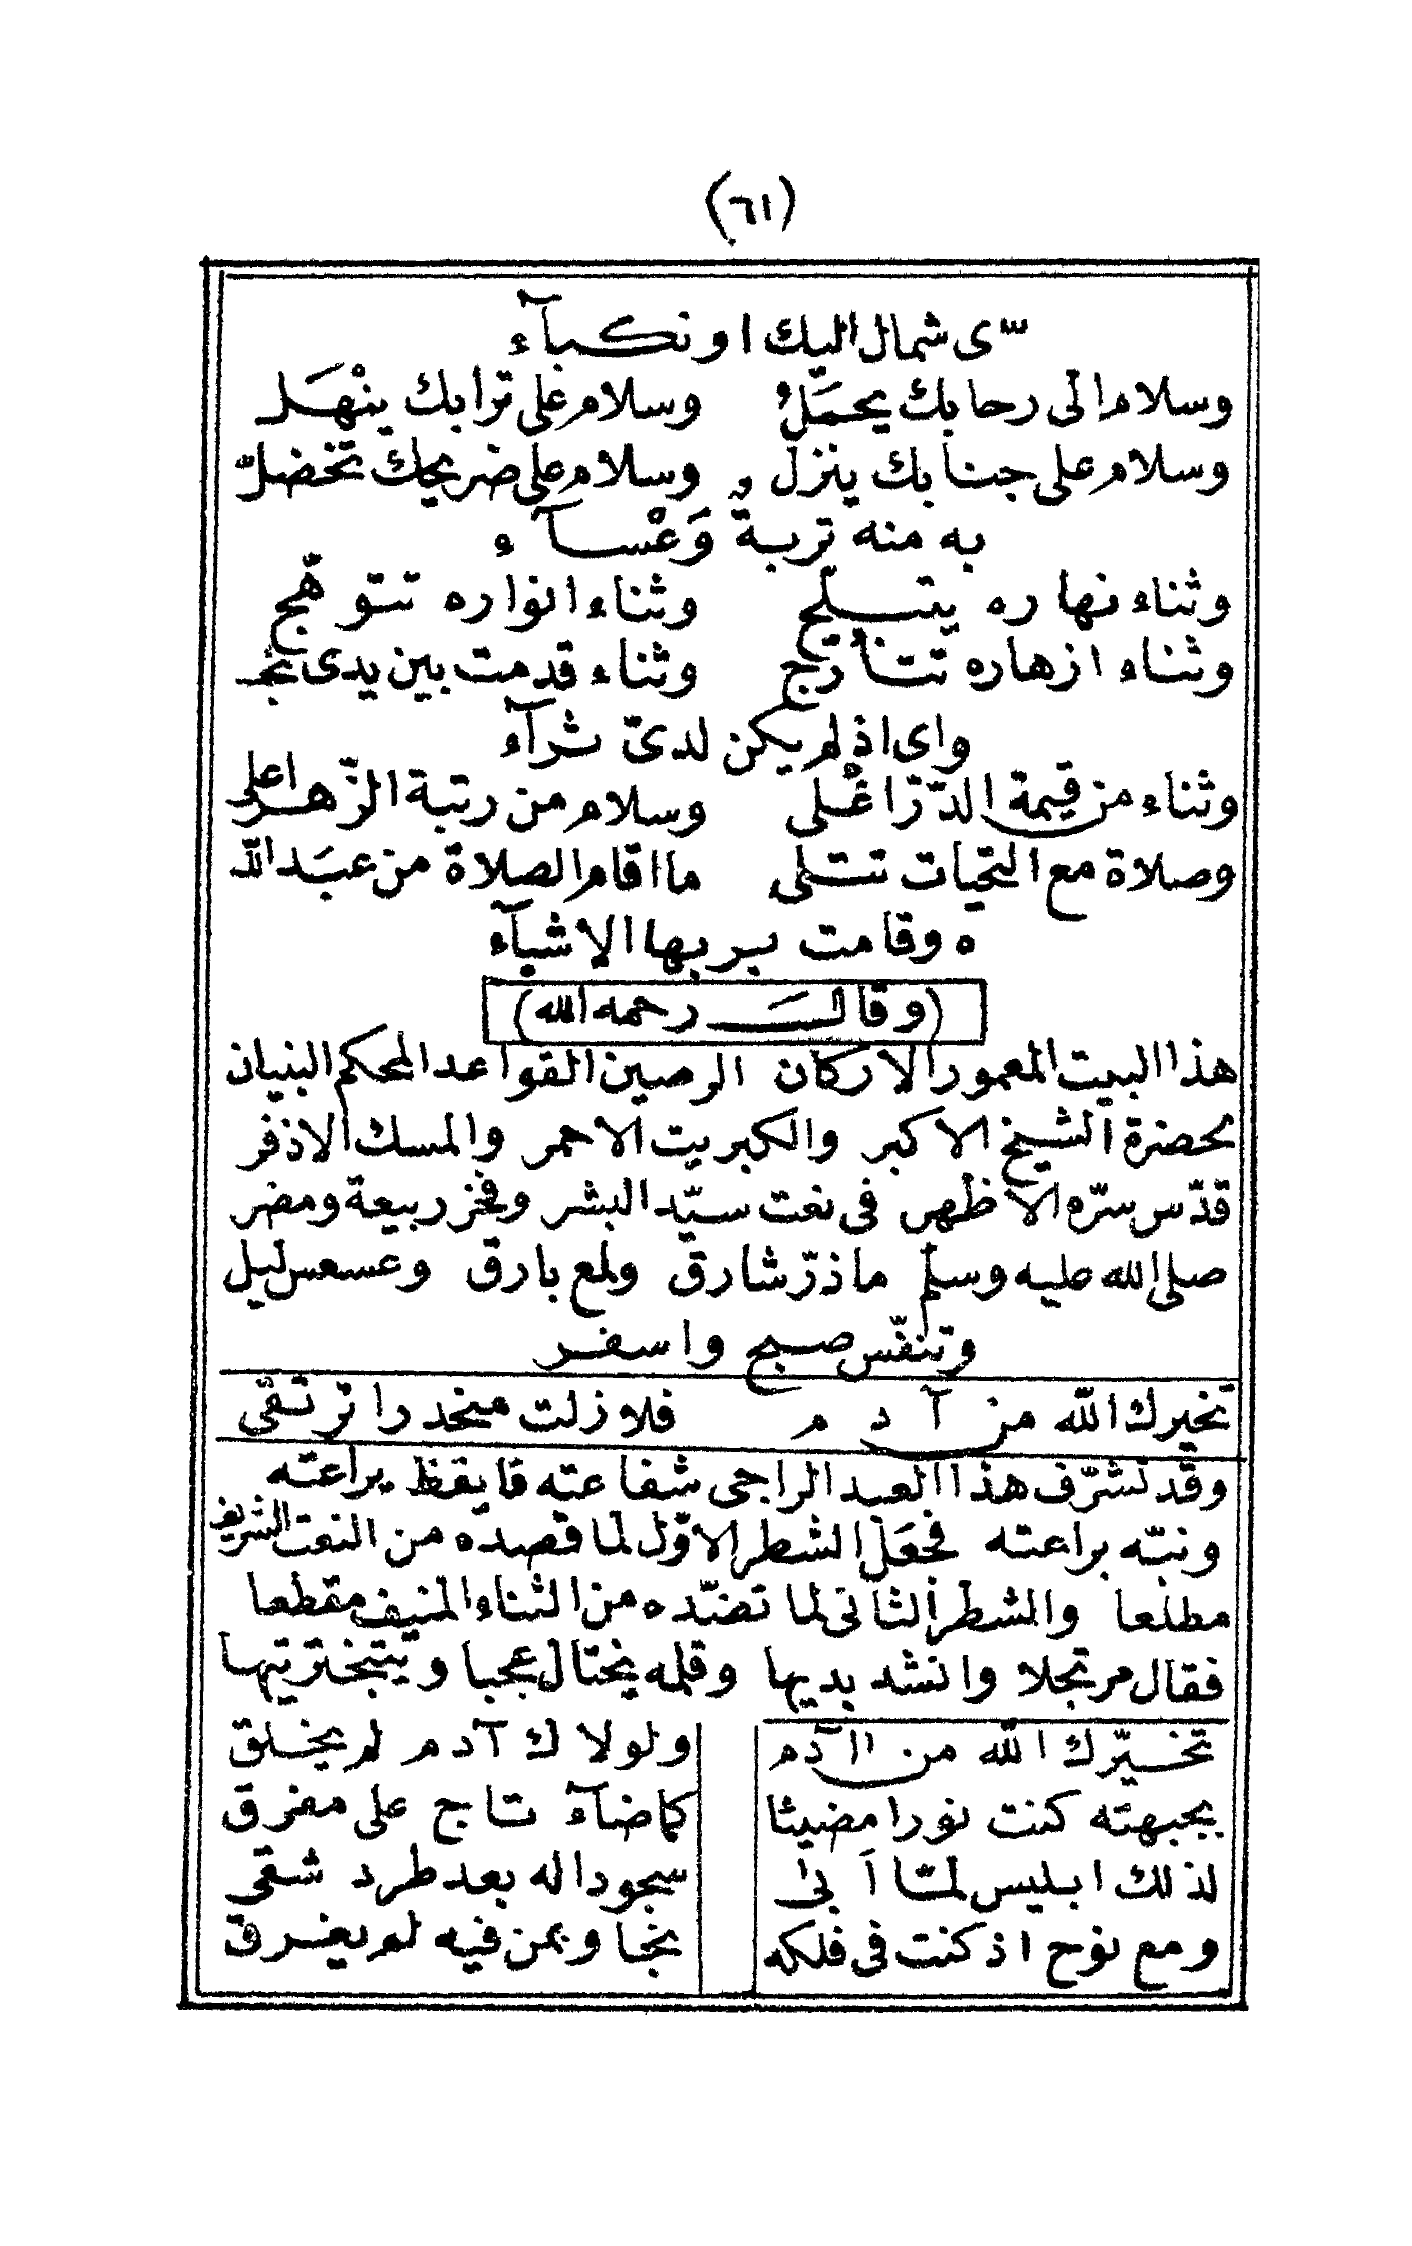 (٦١)
سّى شمال اليك او نكبآء
وسلام الى رحابك يحمَّلُ وسلام على ترابك ينْهَل
وسلام على جنابك ينزل وسلام على ضريحك تخضلّ
به منه تربةٌ وَعْسآء
وثناء نهاره يتبلّج وثناء انواره تتوهّج
وثناء ازهاره تتأرّج وثناء قدمت بين يدى نجـ
واى اذ لم يكن لدىّ ثرآء
وثناء من قيمة الدّرّ اغْلى وسلام من رتبة الزّهر اعلى
وصلاة مع التحيات تتلى ما اقام الصلاة من عبَد الله
ه وقامت بربها الاشيآء
(وقالَ رحمه الله)
هذا البيت المعمور الاركان الرصين القواعد المحكم البنيان
لحضرة الشيخ الاكبر والكبريت الاحمر والمسك الاذفر
قدّس سرّه الاظهر فى نعت سيّد البشر وفخر ربيعة ومضر
صلى الله عليه وسلم ماذرّ شارق ولمع بارق وعسعس ليل
وتنفّس صبح واسفر
تخيرك الله من آدم فلا زلت منحدرا ترتقى
وقد تشرّف هذا العبد الراجى شفاعته قايقظ يراعته
ونبّه براعته فجعَل الشطر الاوّل لما قصده من النعت الشريف
مطلعا والشطر الثانى لما تضدّه من الثناء المنيف مقطعا
فقال مرتجلا وانشد بديها وقلمه يختال عجبا ويتبختر تيها
تخيّرك الله من اآدم ولولاك آدم لم يخلق
بجبهته كنت نورا مضيئا كما ضآء تاج على مفرق
لذلك ابليس لمّا اَبى سجودا له بعد طرد شقى
ومع نوح اذ كنت فى فلكه نجا وبمن فيه لم يغرق